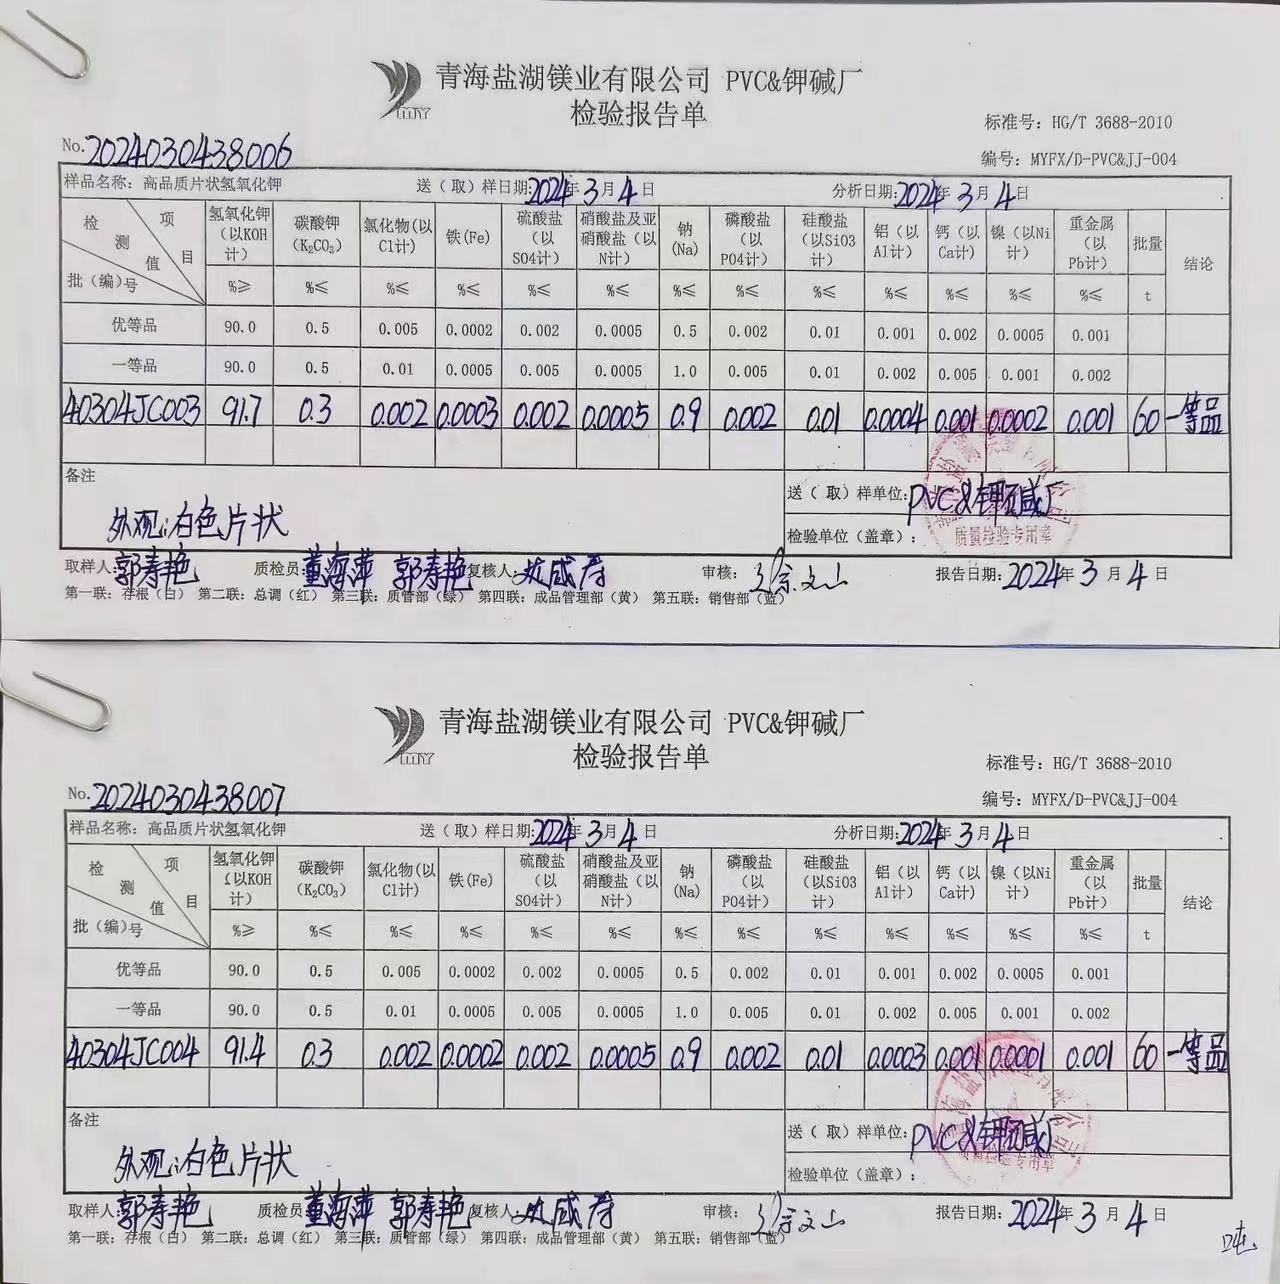 青海盐湖镁业有限公司 PVC&钾碱厂
MY
检验报告单
标准号：HG/T 3688-2010
No.2024030438006
编号：MYFX/D-PVC&JJ-004
样品名称：高品质片状氢氧化钾 送（取）样日期：2024年3月4日 分析日期：2024年3月4日
检测值 项目 批（编）号 氢氧化钾（以KOH计） 碳酸钾（K₂CO₃） 氯化物(以Cl计) 铁(Fe) 硫酸盐（以SO4计） 硝酸盐及亚硝酸盐（以N计） 钠(Na) 磷酸盐（以PO4计） 硅酸盐（以SiO3计） 铝（以Al计） 钙（以Ca计） 镍（以Ni计） 重金属（以Pb计） 批量 结论
%≥ %≤ %≤ %≤ %≤ %≤ %≤ %≤ %≤ %≤ %≤ %≤ %≤ t
优等品 90.0 0.5 0.005 0.0002 0.002 0.0005 0.5 0.002 0.01 0.001 0.002 0.0005 0.001
一等品 90.0 0.5 0.01 0.0005 0.005 0.0005 1.0 0.005 0.01 0.002 0.005 0.001 0.002
40304JC003 91.7 0.3 0.002 0.0003 0.002 0.0005 0.9 0.002 0.01 0.0004 0.001 0.0002 0.001 60 一等品
备注
外观：白色片状
送（取）样单位：PVC&钾碱厂
检验单位（盖章）：
质量检验专用章
取样人：郭寿艳 质检员：董海萍 郭寿艳 复核人： 审核：徐文山 报告日期：2024年3月4日
第一联：存根（白） 第二联：总调（红） 第三联：质管部（绿） 第四联：成品管理部（黄） 第五联：销售部（蓝）
青海盐湖镁业有限公司 PVC&钾碱厂
MY
检验报告单
标准号：HG/T 3688-2010
No.2024030438007
编号：MYFX/D-PVC&JJ-004
样品名称：高品质片状氢氧化钾 送（取）样日期：2024年3月4日 分析日期：2024年3月4日
检测值 项目 批（编）号 氢氧化钾（以KOH计） 碳酸钾（K₂CO₃） 氯化物(以Cl计) 铁(Fe) 硫酸盐（以SO4计） 硝酸盐及亚硝酸盐（以N计） 钠(Na) 磷酸盐（以PO4计） 硅酸盐（以SiO3计） 铝（以Al计） 钙（以Ca计） 镍（以Ni计） 重金属（以Pb计） 批量 结论
%≥ %≤ %≤ %≤ %≤ %≤ %≤ %≤ %≤ %≤ %≤ %≤ %≤ t
优等品 90.0 0.5 0.005 0.0002 0.002 0.0005 0.5 0.002 0.01 0.001 0.002 0.0005 0.001
一等品 90.0 0.5 0.01 0.0005 0.005 0.0005 1.0 0.005 0.01 0.002 0.005 0.001 0.002
40304JC004 91.4 0.3 0.002 0.0002 0.002 0.0005 0.9 0.002 0.01 0.0003 0.001 0.0001 0.001 60 一等品
备注
外观：白色片状
送（取）样单位：PVC&钾碱厂
质量检验专用章
检验单位（盖章）：
取样人：郭寿艳 质检员：董海萍 郭寿艳 复核人： 审核：徐文山 报告日期：2024年3月4日
第一联：存根（白） 第二联：总调（红） 第三联：质管部（绿） 第四联：成品管理部（黄） 第五联：销售部（蓝）